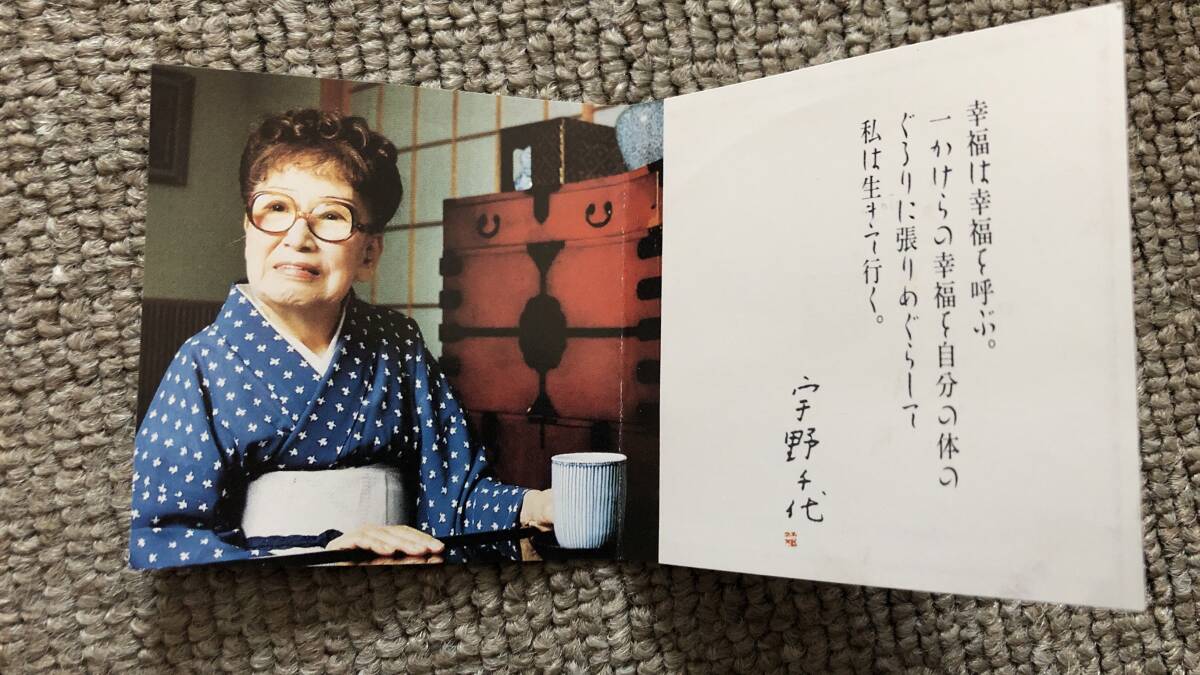 幸福は幸福を呼ぶ。
一かけらの幸福を自分の体の
ぐるりに張りめぐらして
私は生きて行く。
宇野千代